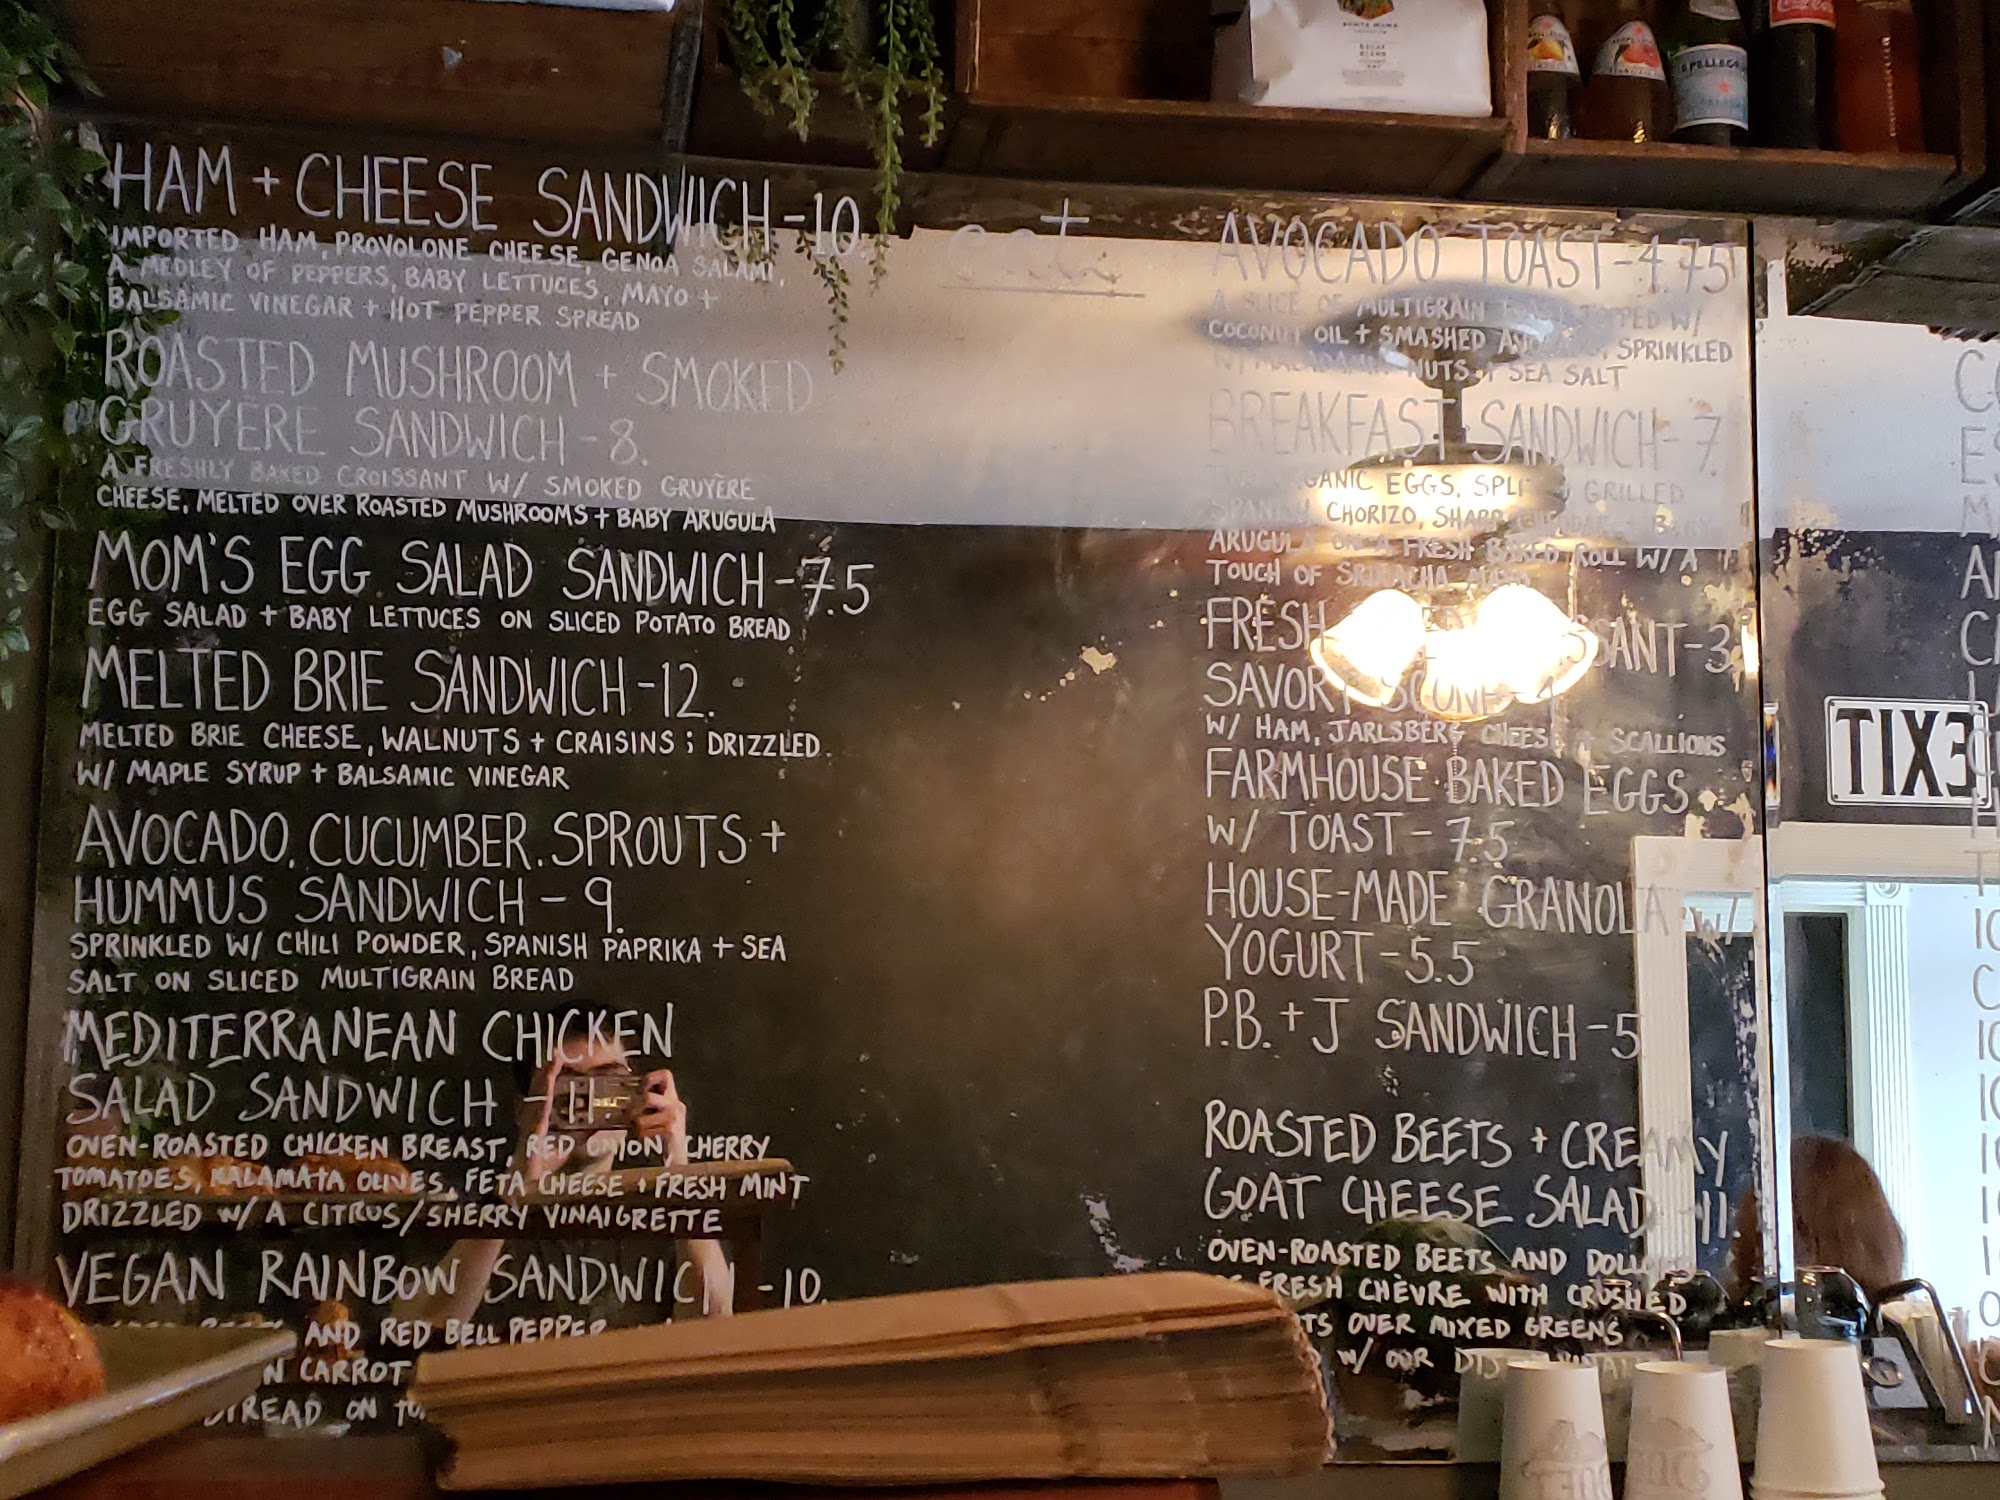 HAM + CHEESE SANDWICH - 10.
IMPORTED HAM, PROVOLONE CHEESE, GENOA SALAMI,
A MEDLEY OF PEPPERS, BABY LETTUCES, MAYO +
BALSAMIC VINEGAR + HOT PEPPER SPREAD
ROASTED MUSHROOM + SMOKED
GRUYERE SANDWICH - 8.
A FRESHLY BAKED CROISSANT W/ SMOKED GRUYERE
CHEESE, MELTED OVER ROASTED MUSHROOMS + BABY ARUGULA
MOM'S EGG SALAD SANDWICH - 7.5
EGG SALAD + BABY LETTUCES ON SLICED POTATO BREAD
MELTED BRIE SANDWICH - 12.
MELTED BRIE CHEESE, WALNUTS + CRAISINS ; DRIZZLED
W/ MAPLE SYRUP + BALSAMIC VINEGAR
AVOCADO, CUCUMBER, SPROUTS +
HUMMUS SANDWICH - 9.
SPRINKLED W/ CHILI POWDER, SPANISH PAPRIKA + SEA
SALT ON SLICED MULTIGRAIN BREAD
MEDITERRANEAN CHICKEN
SALAD SANDWICH - 11.
OVEN-ROASTED CHICKEN BREAST, RED ONION, CHERRY
TOMATOES, KALAMATA OLIVES, FETA CHEESE + FRESH MINT
DRIZZLED W/ A CITRUS/SHERRY VINAIGRETTE
VEGAN RAINBOW SANDWICH - 10.
AND RED BELL PEPPER
CARROT
ON
eat
AVOCADO TOAST - 4.75
A SLICE OF MULTIGRAIN TOAST TOPPED W/
COCONUT OIL + SMASHED AVOCADO, SPRINKLED
W/ MACADAMIA NUTS + SEA SALT
BREAKFAST SANDWICH - 7.
EGGS, GRILLED
SPANISH CHORIZO, SHARP CHEDDAR + BABY
ARUGULA ON A FRESH BAKED ROLL W/ A
TOUCH OF SRIRACHA MAYO
FRESH BAKED CROISSANT - 3.
SAVORY SCONE - 4
W/ HAM, JARLSBERG CHEESE + SCALLIONS
FARMHOUSE BAKED EGGS
W/ TOAST - 7.5
HOUSE-MADE GRANOLA W/
YOGURT - 5.5
P.B. + J SANDWICH - 5
ROASTED BEETS + CREAMY
GOAT CHEESE SALAD - 11.
OVEN-ROASTED BEETS AND DOLLOPS
OF FRESH CHÈVRE WITH CRUSHED
OVER MIXED GREENS
W/ OUR
DECAF
BLEND
S.PELLEGRINO
Coca-Cola
EXIT